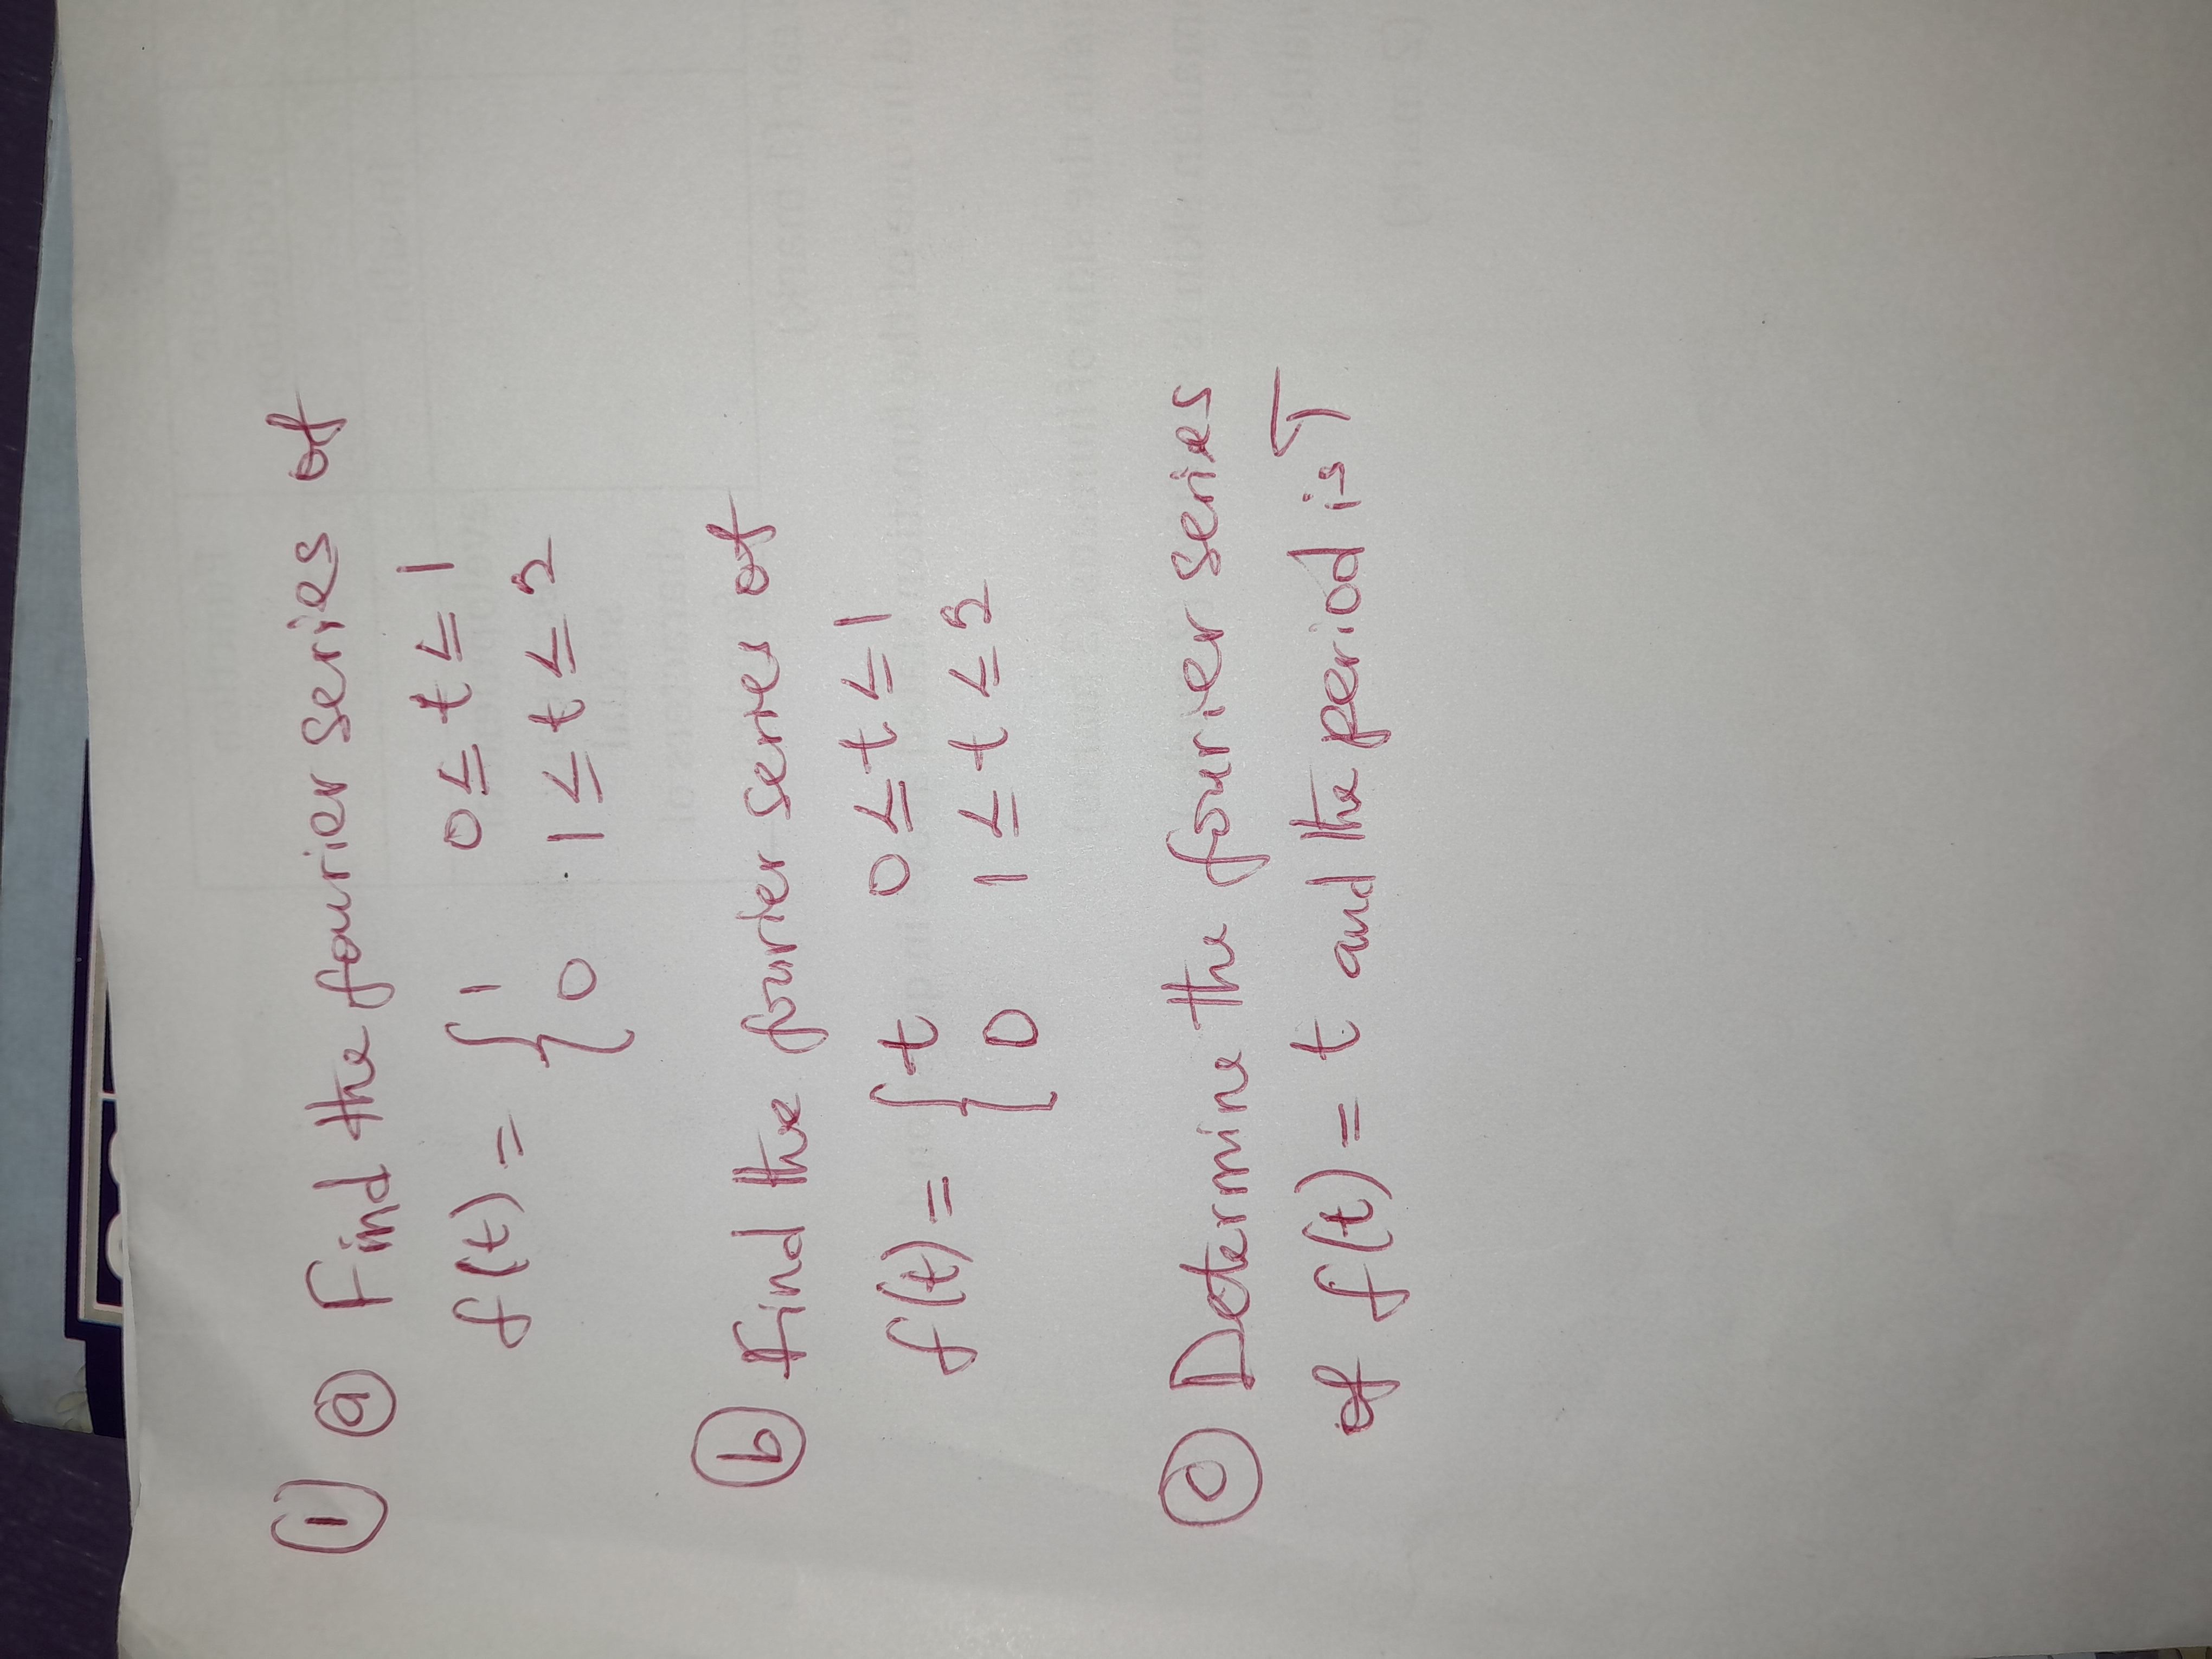 ① ⓐ Find the fourier series of
f(t) = { 1 0 ≤ t ≤ 1
0 1 ≤ t ≤ 2
ⓑ Find the fourier series of
f(t) = { t 0 ≤ t ≤ 1
0 1 ≤ t ≤ 2
ⓒ Determine the fourier series
of f(t) = t and the period is T